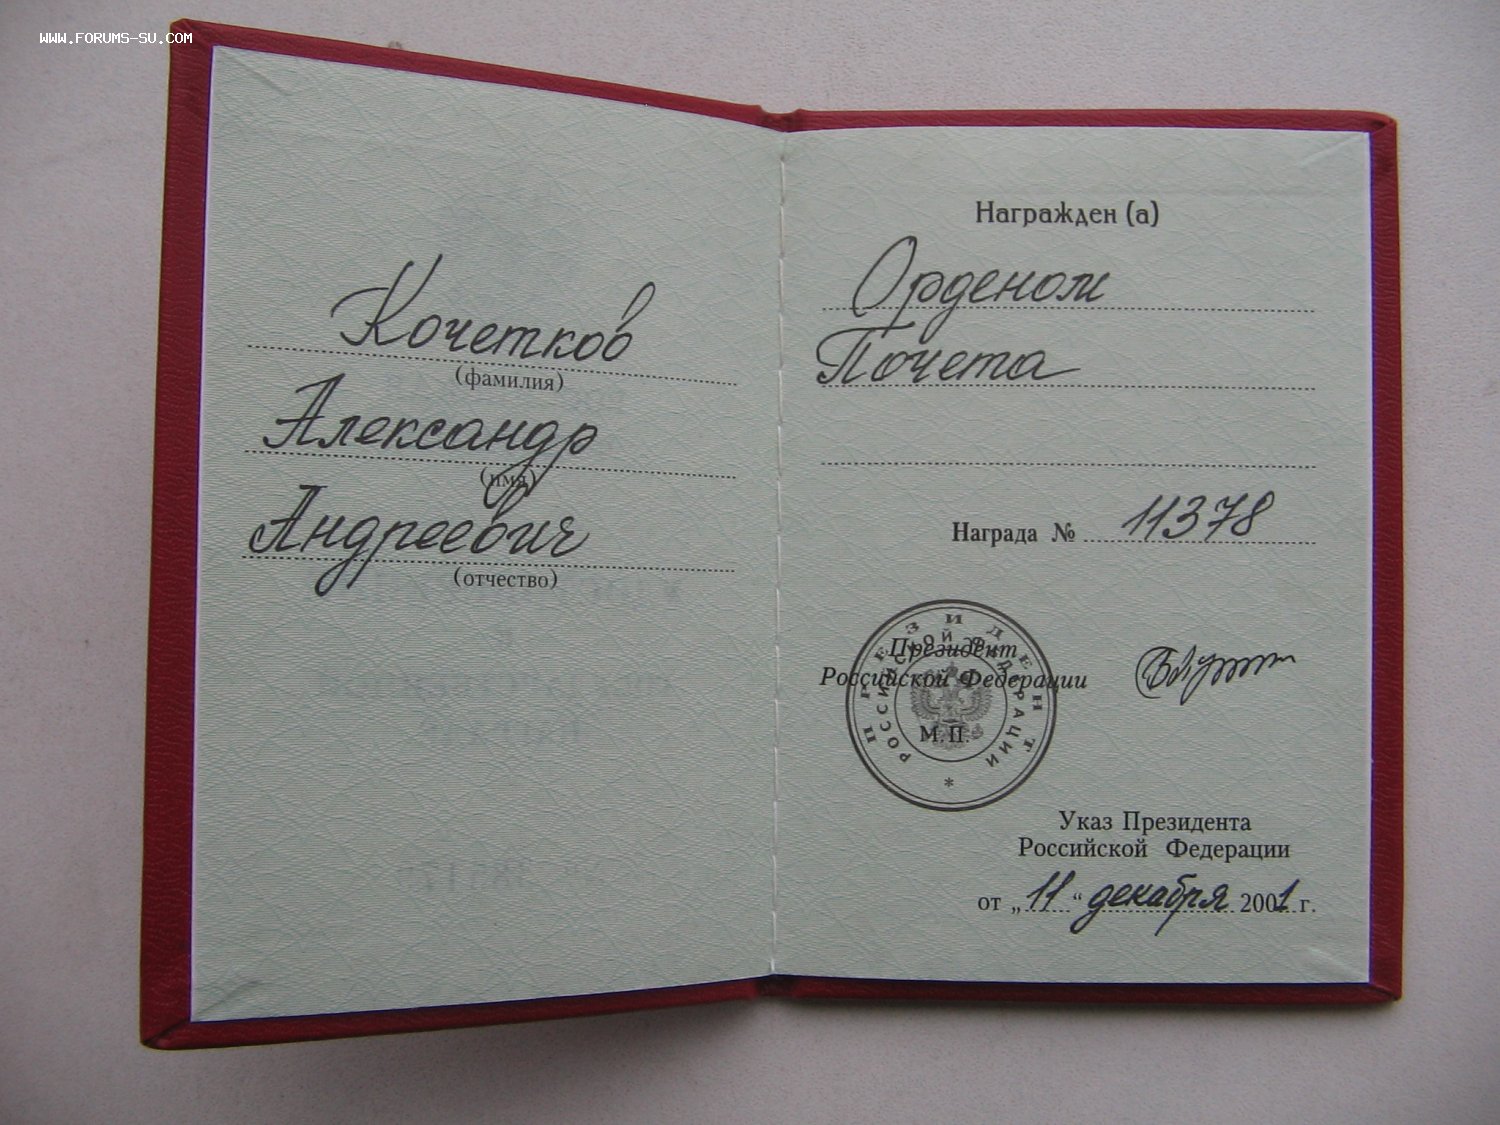 www.forums-su.com
Кочетков
(фамилия)
Александр
(имя)
Андреевич
(отчество)
Награжден (а)
Орденом
Почета
Награда № 11378
ПРЕЗИДЕНТ
РОССИЙСКОЙ ФЕДЕРАЦИИ
*
Президент
Российской Федерации
М.П.
Указ Президента
Российской Федерации
от „11“ декабря 2001 г.